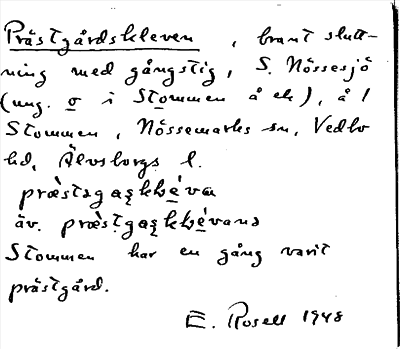 Prästgårdskleven, brant slutt-
ning med gångstig, S. Nössesjö
(ung. o i Stommen å ek), å 1
Stommen, Nössemarks sn, Vedbo
hd, Älvsborgs l.
äv.
Stommen har en gång varit
prästgård.
E. Rosell 1948